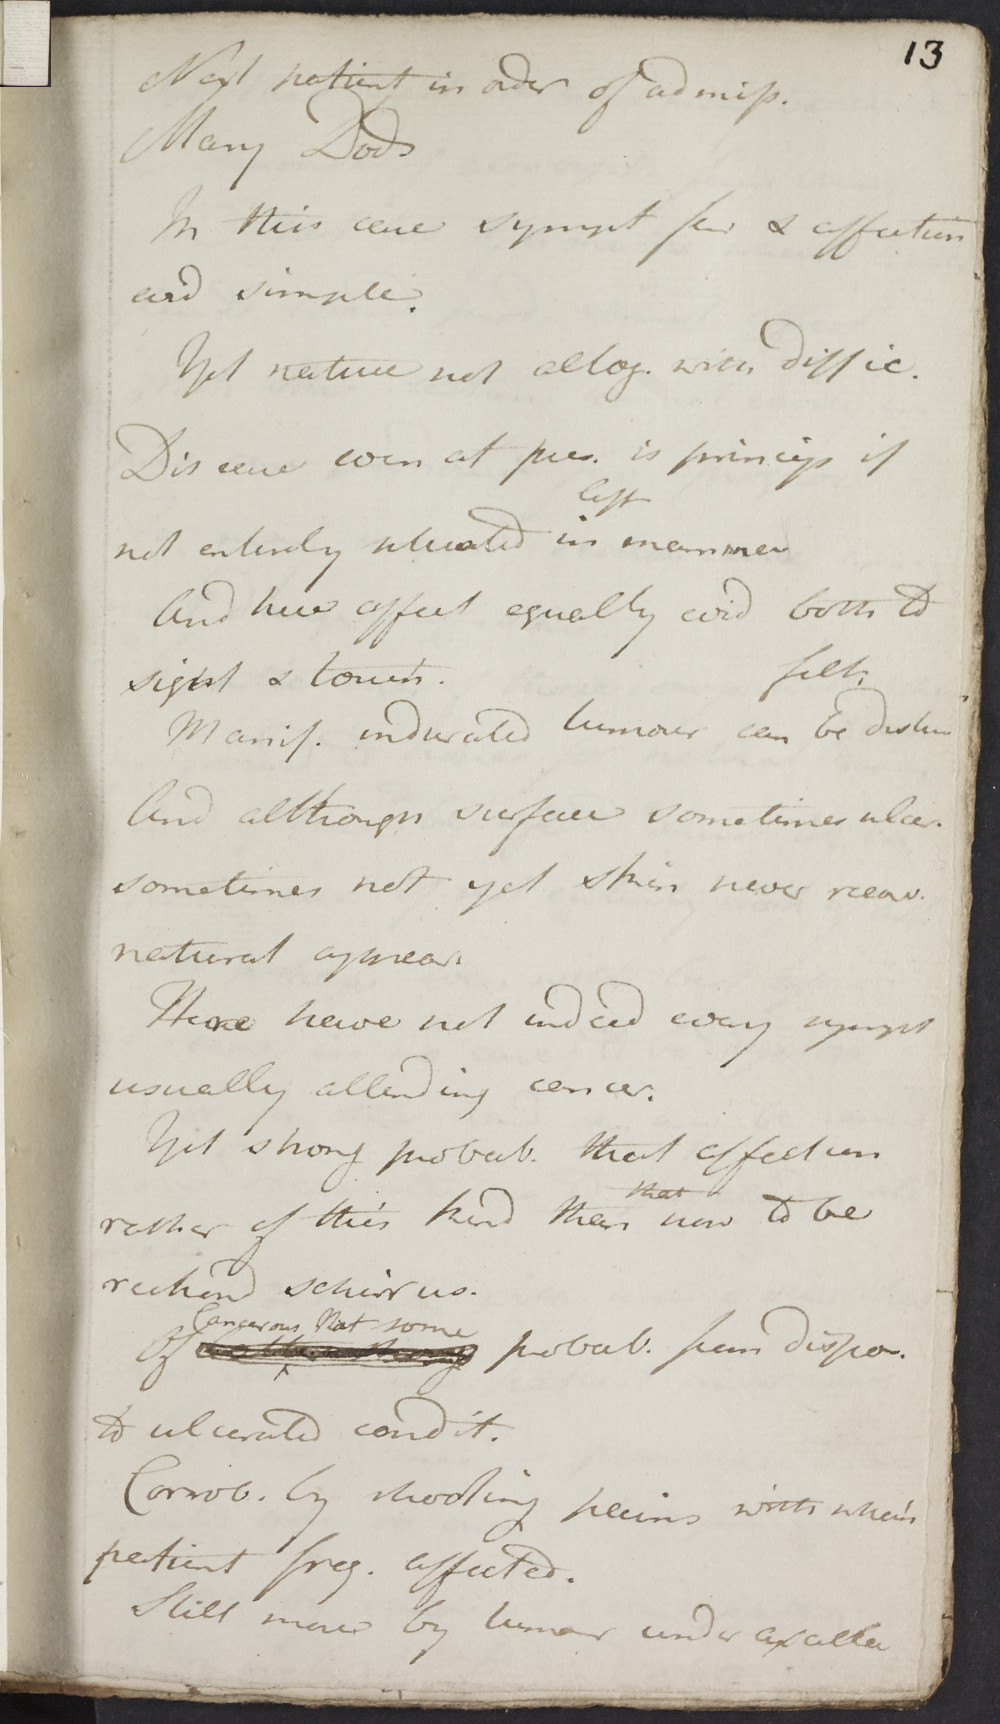 13
Next patient in order of admiss.
Mary Dods
In this case sympt few & affection
evid simple.
Yet nature not altog. with diffic.
Disease even at pres. is princip if
left
not entirely situated in mamma
And here affect equally evid both to
sight & touch.
felt
Manif. indurated tumour can be distin
And although surface sometimes ulcer.
sometimes not yet skin never recov.
natural appear.
Here have not indeed every sympt
usually attending cancer.
Yet strong probab. that affection
that
rather of this kind than now to be
reckond schirrus.
Cancerous Nat some
Of probab. from dispos.
to ulcerated condit.
Corrob. by shooting pains with which
patient freq. affected.
Still more by tumour under axilla